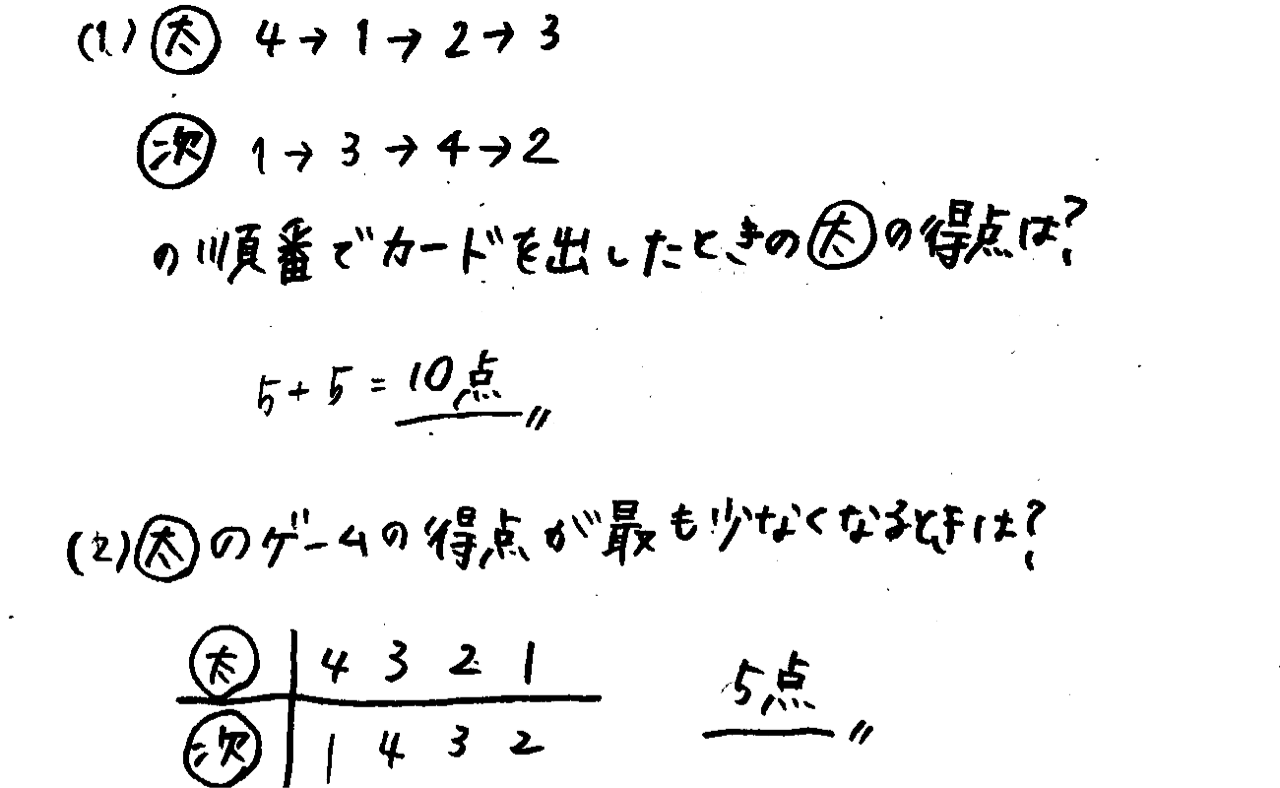 (1) 太 4→1→2→3
次 1→3→4→2
の順番でカードを出したときの太の得点は?
5+5=10点
(2) 太のゲームの得点が最も少なくなるときは?
太 4 3 2 1 5点
次 1 4 3 2